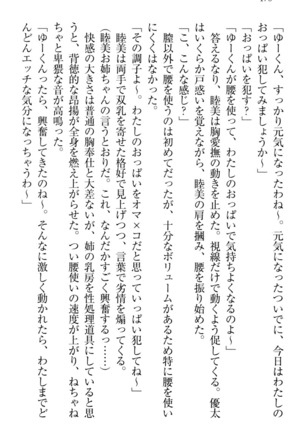 「ゆーくん、すっかり元気になったわね～。元気になったついでに、今日はわたしの
おっぱい犯してみましょうか～」
「おっぱいを犯す？」
「ゆーくんが腰を使って、わたしのおっぱいで気持ちよくなるのよ～」
答えるなり、睦美は胸愛撫の動きを止めた。視線だけで動くよう促してくる。優太
はいくらか戸惑いを覚えながら、睦美の肩を掴み、腰を振り始めた。
「こ、こんな感じ？」
膣以外で腰を使うのは初めてだったが、十分なボリュームがあるため特に腰を使い
にくくはなかった。
「その調子よ～。わたしのおっぱいをオマ×コだと思っていっぱい犯してね～」
睦美は両手で双乳を寄せた格好で見上げつつ、言葉で劣情を煽ってくる。
（睦美お姉ちゃんの言うとおりだ。これ、なんだかすごく興奮する……）
快感の大きさは普通の胸奉仕と大差ないが、姉の乳房を性処理道具にしていると思
うと、背徳的な昂揚が全身を燃え上がらせた。つい腰使いの速度が上がり、ねちゃね
ちゃと卑猥な音が高鳴った。
「ゆーくんったら、興奮してきたのね～。そんなに激しく動かれたら、わたしまでど
んどんエッチな気分になっちゃうわ～」